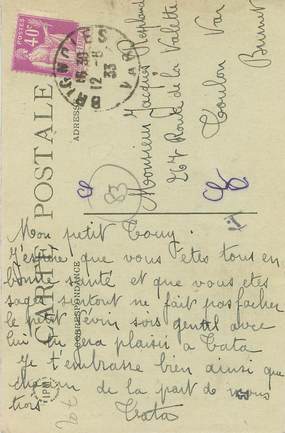 CARTE POSTALE
CORRESPONDANCE
ADRESSE
POSTES
40c
BRIGNOLES
16 30
12 -8
33
VAR
Monsieur Jacques
267 Route de la Valette
Toulon Var
83
Mon petit
J'espère que vous êtes tous en
bonne santé et que vous etes
sages surtout ne fait pas facher
le petit sois gentil avec
lui tu fera plaisir a Tata
Je t'embrasse bien ainsi que
chacun de la part de nous
trois
Tata